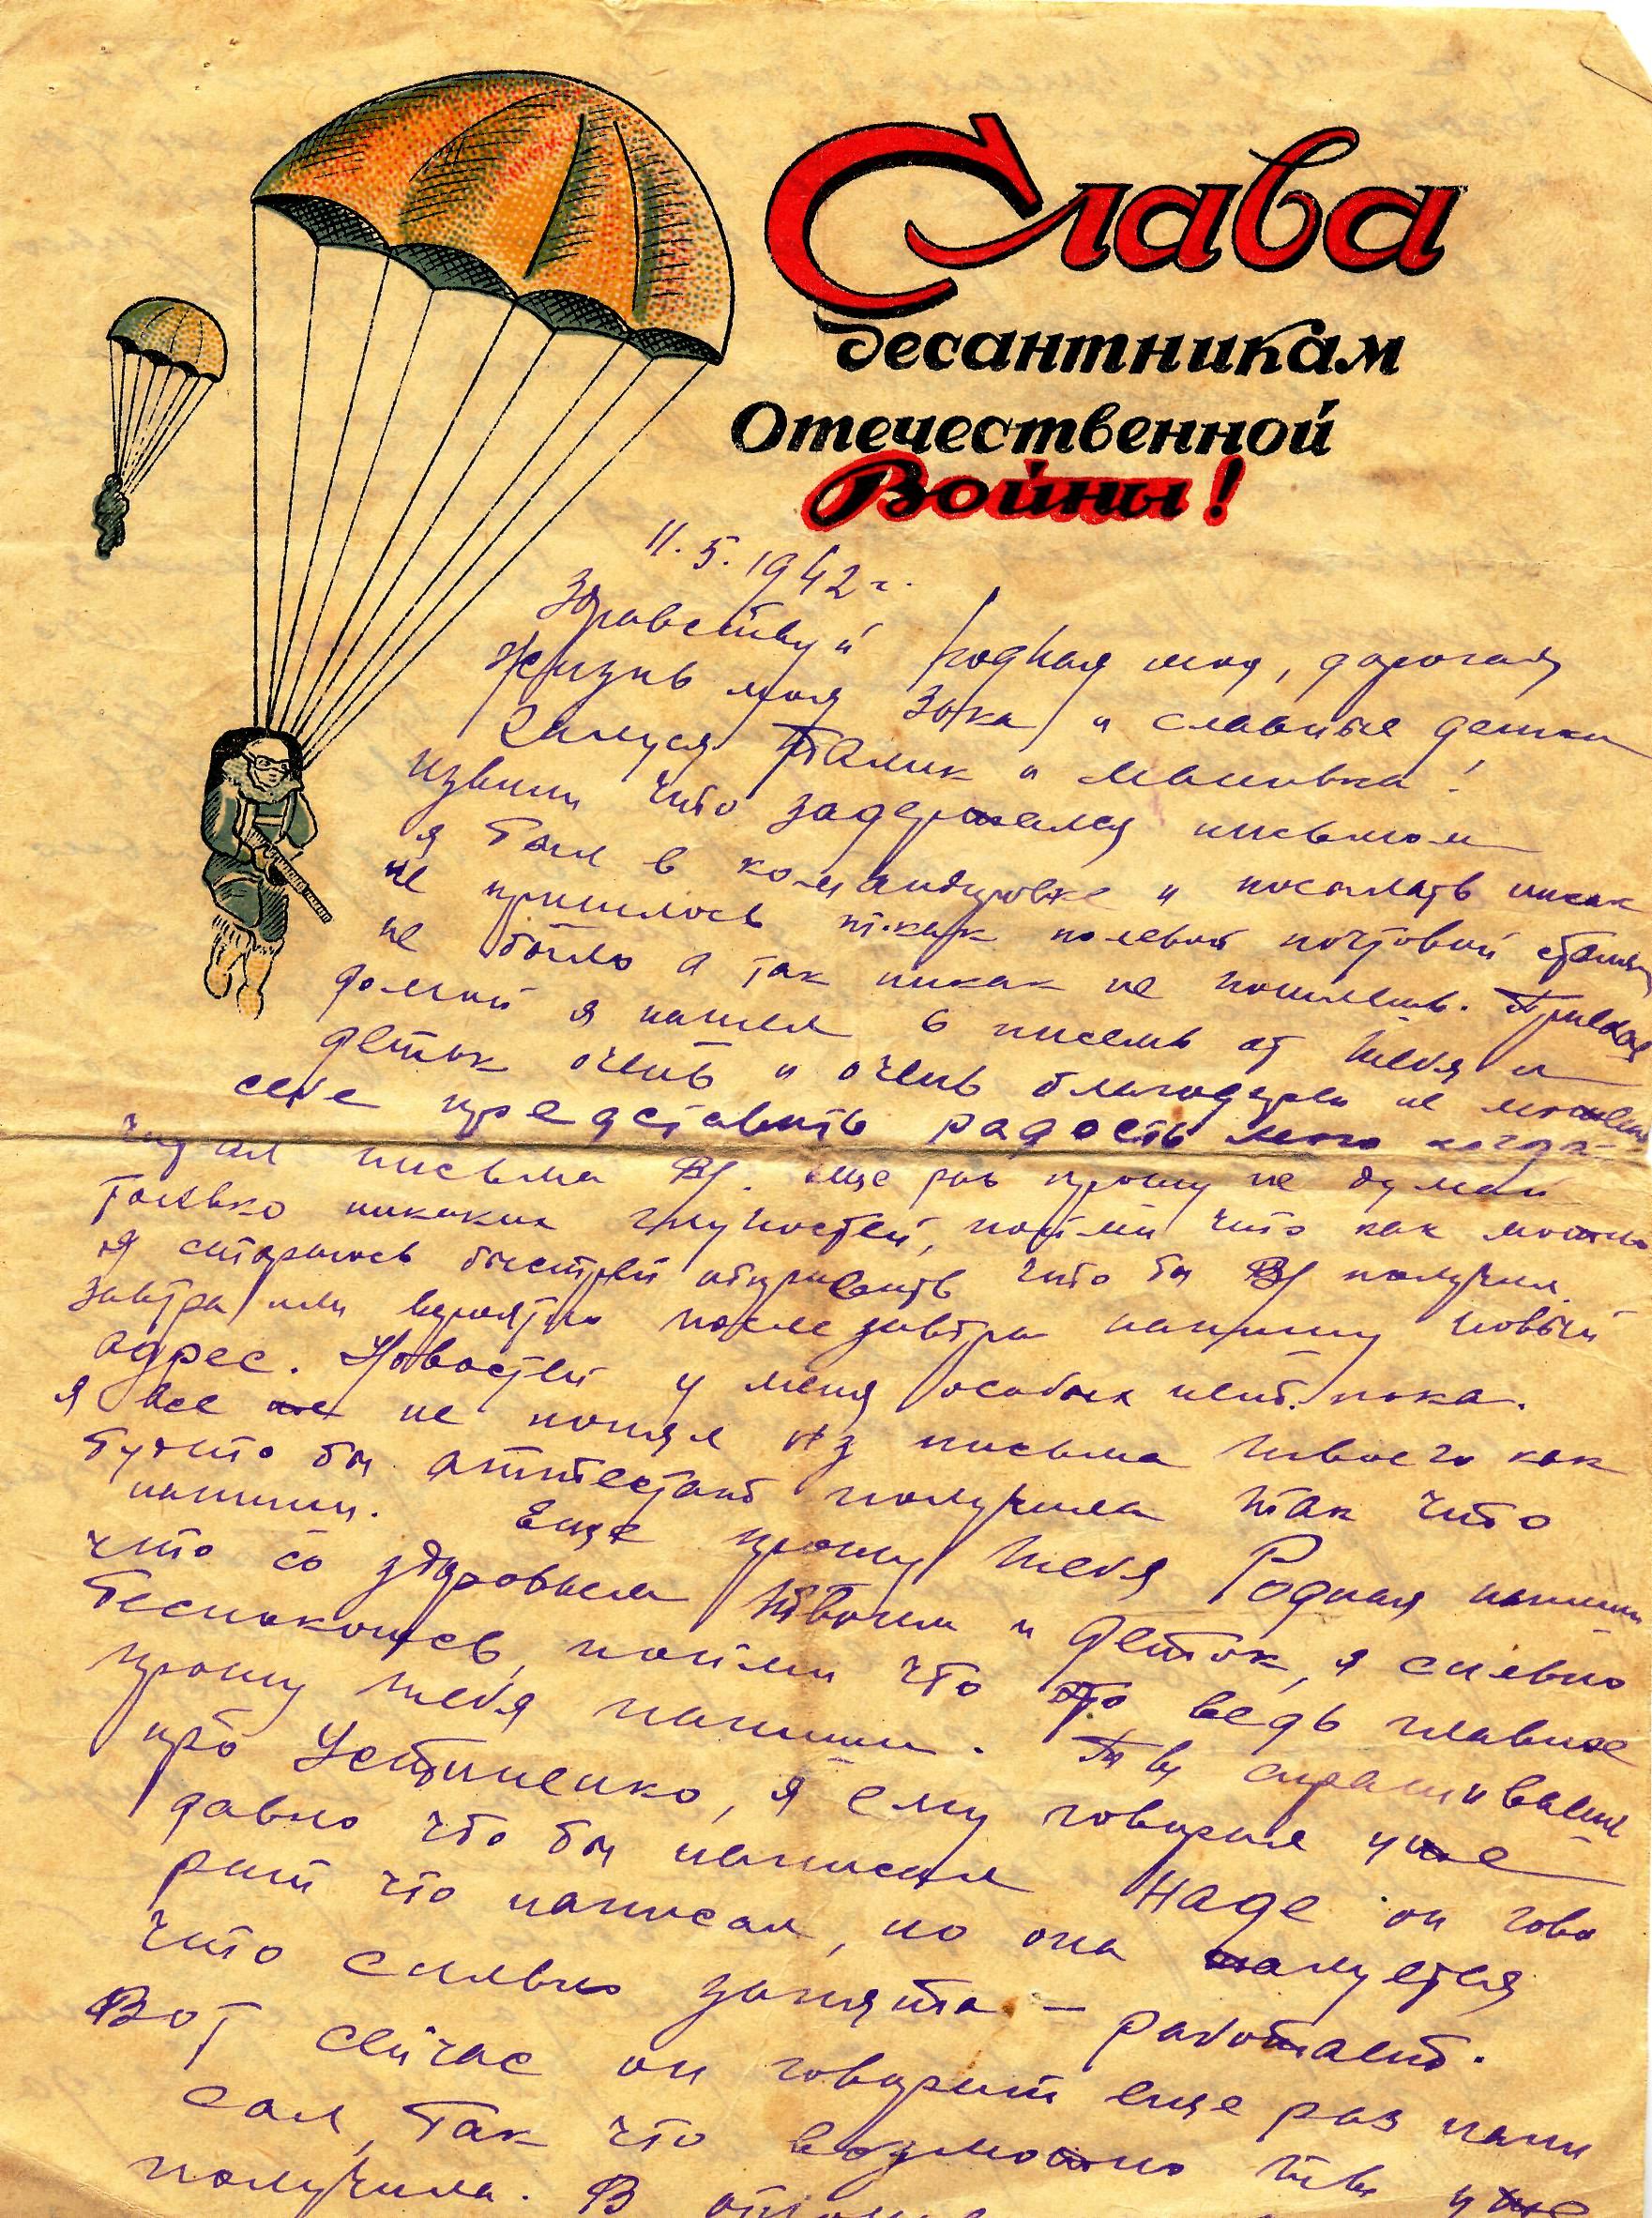 Слава
десантникам
Отечественной
Войны!
11.5.1942 г.
Здравствуй родная моя, дорогая
жизнь моя Зока и славные детки
Галик и мамочка!
извини что задержался письмом
я был в командировке и послать никак
не пришлось т.как полевой почтовой станц
не было а так никак не пошлешь. Приехав
домой я нашел 6 писем от тебя и
деток очень и очень благодарен не можешь
себе представить радость мою когда
читал письма Вj. еще раз прошу не думай
только никаких глупостей, пойми что как можно
я стараюсь быстрей отправить что бы Вj получил.
завтра или вероятно после завтра напишу новый
адрес. Новостей у меня особых нет. пока.
я все не понял из письма твоего как
будто бы аттестат получила так что
напиши. Еще прошу тебя Родная напиши
что со здоровьем твоим и деток, я сильно
беспокоюсь, пойми что это ведь главное
прошу тебя напиши. Ты спрашиваешь
про Устименко, я ему говорил уже
давно что бы написал Наде он гово
рит что написал, но она жалуется
что сильно занята – работает.
Вот сейчас он говорит еще раз напи
сал, так что возможно уже
получила. В